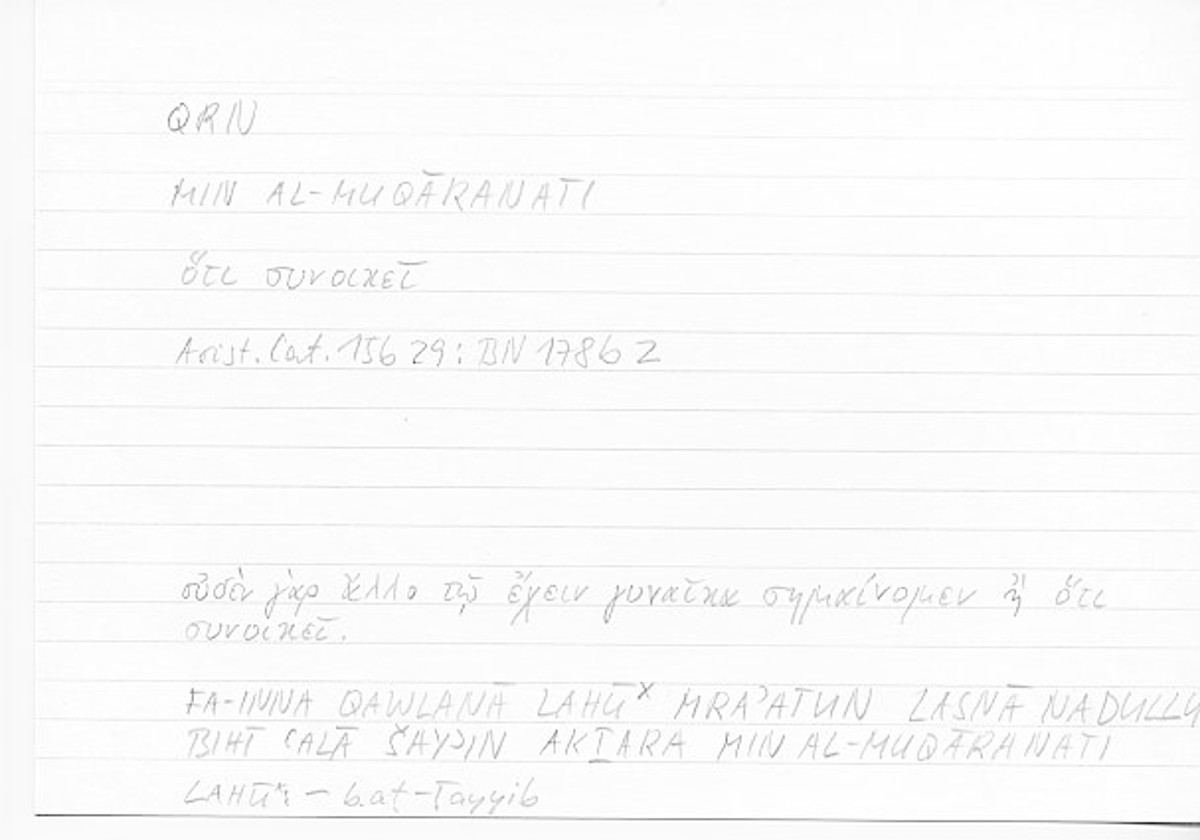 QRN
MIN AL-MUQĀRANATI
ὅτι συνοικεῖ
Arist. Cat. 15b 29 : BN 178b 2
οὐδὲν γὰρ ἄλλο τῷ ἔχειν γυναῖκα σημαίνομεν ἢ ὅτι
συνοικεῖ.
FA-INNA QAWLANĀ LAHŪˣ MRAʾATUN LASNĀ NADULLU
BIHĪ ʿALĀ ŠAYʾIN AKṮARA MIN AL-MUQĀRANATI
LAHŪˣ: – b. aṭ-Ṭayyib